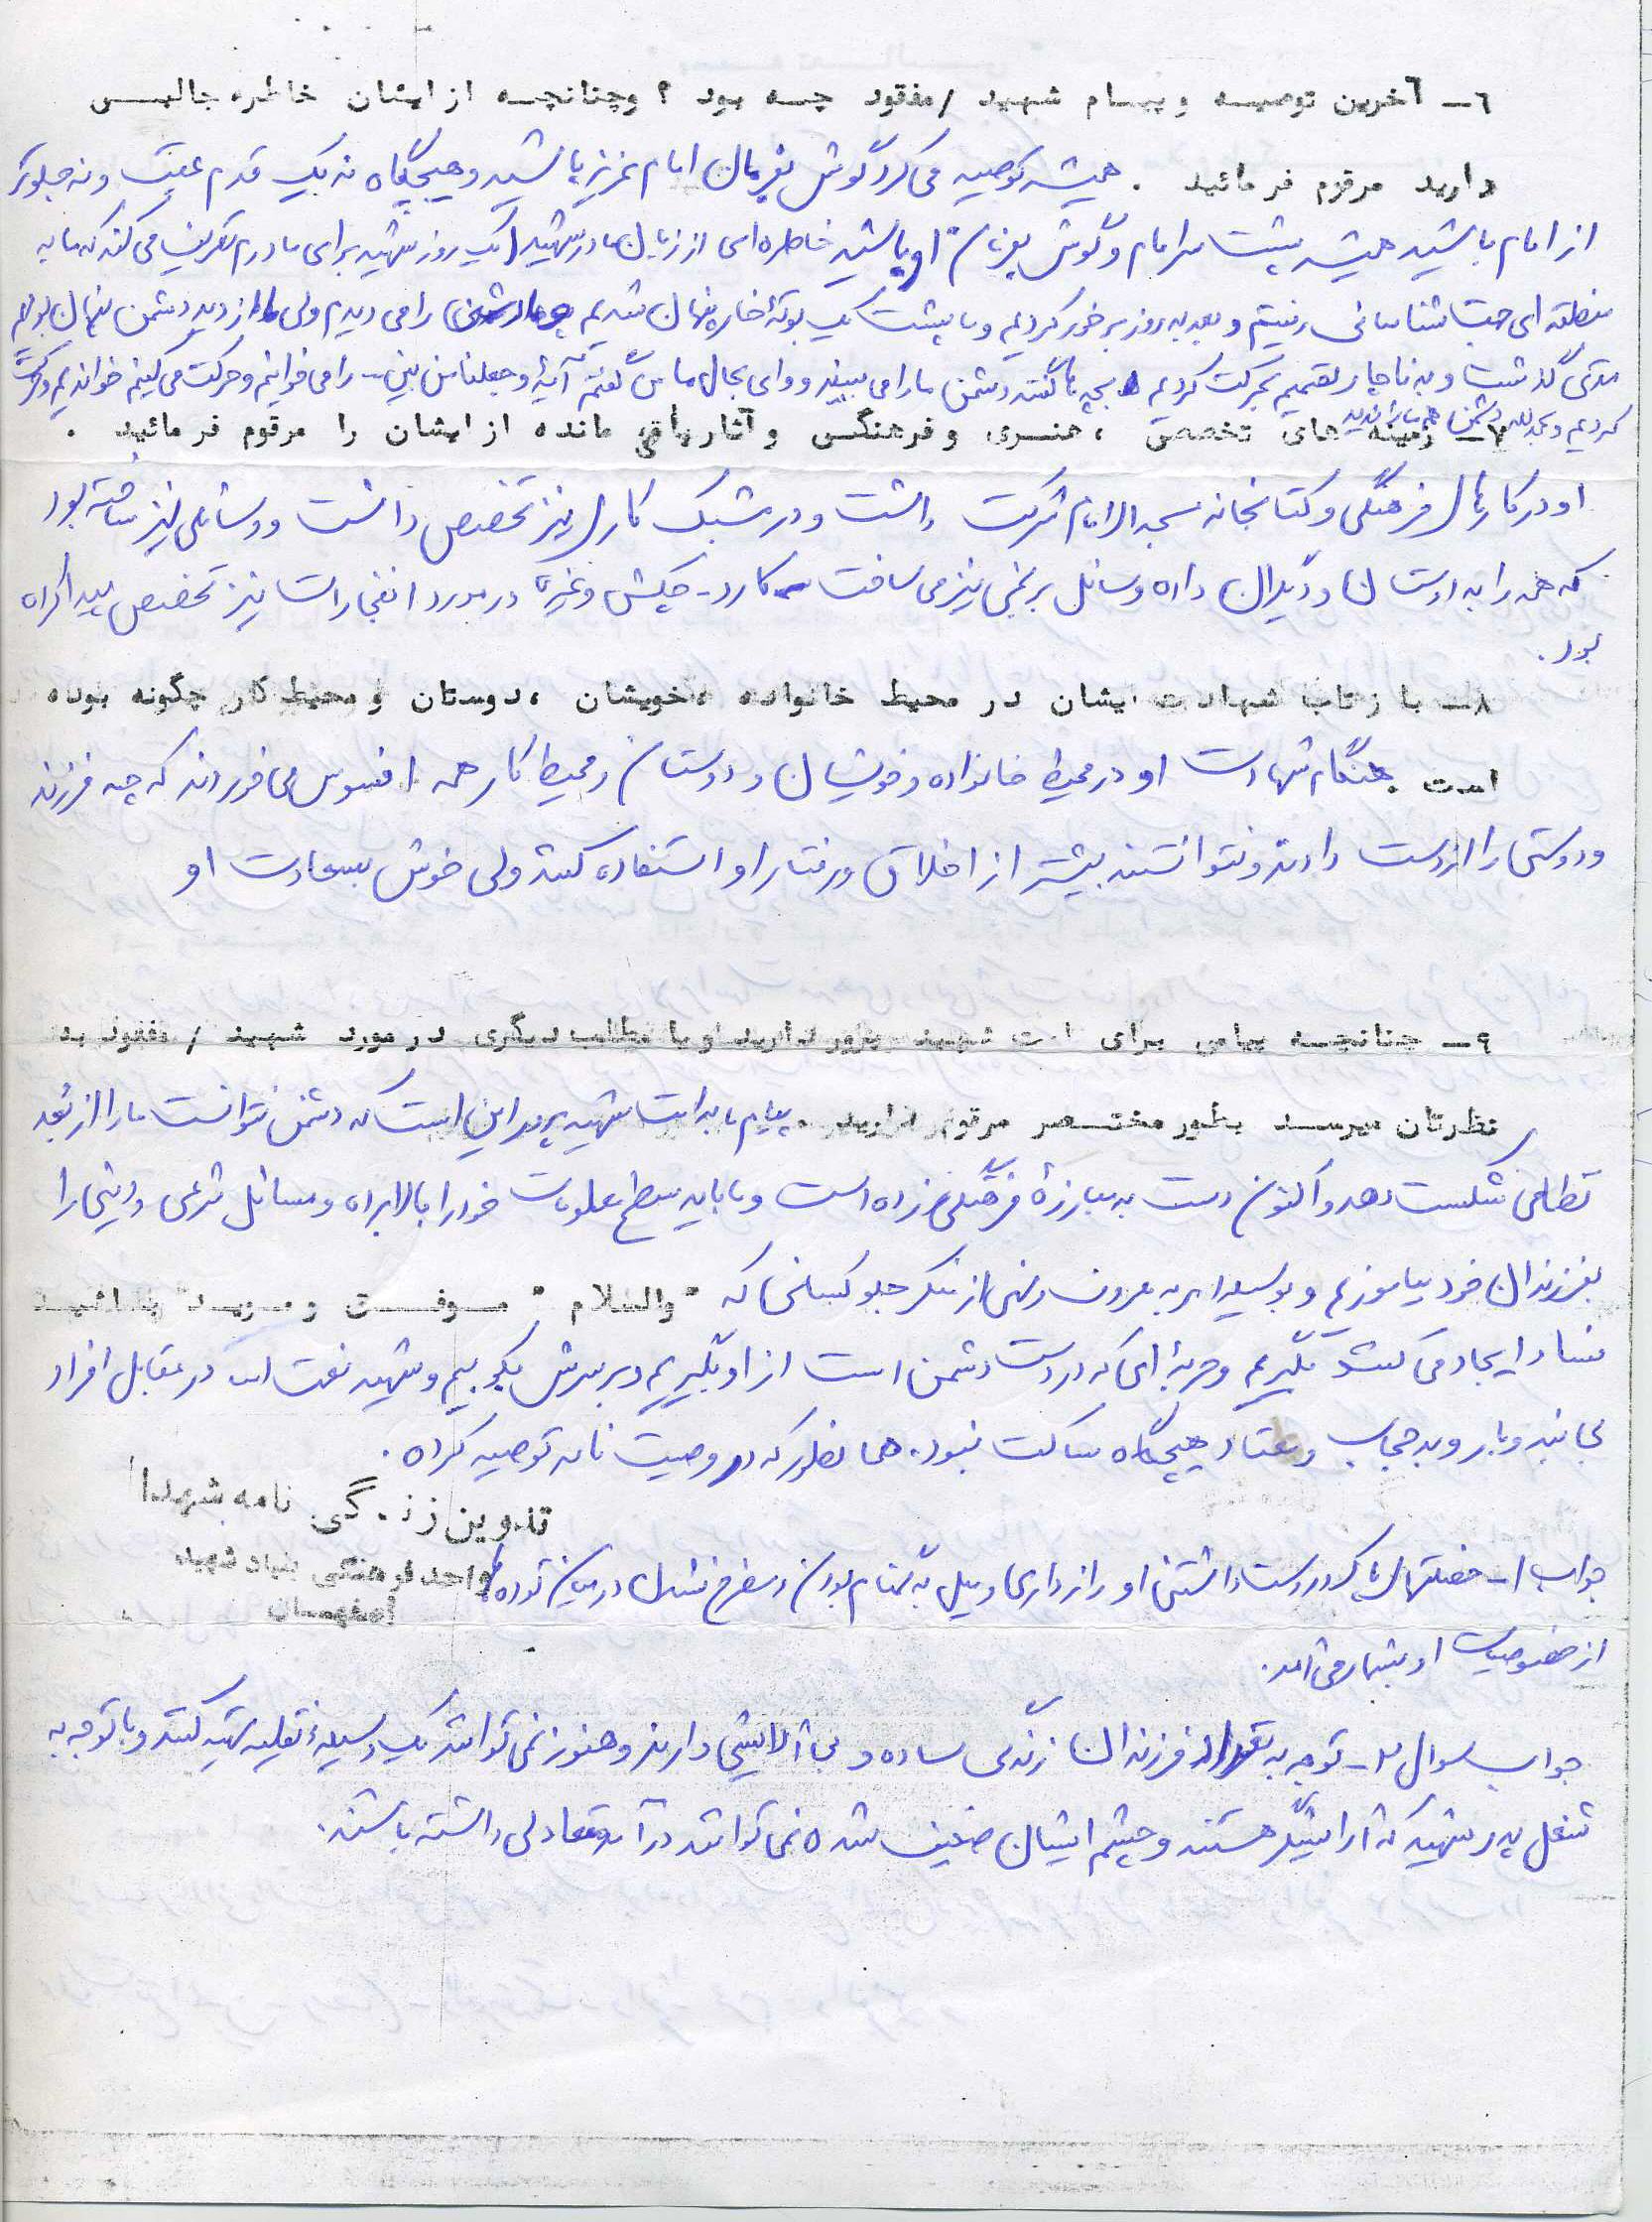 ٦ــ آخرین توصیـه و پیـام شهید /مفقود چـه بود ؟ وچنانچـه از ایشان خاطره جالبـی
دارید مرقوم فرمائید . همیشه توصیه می کرد گوش بفرمان امام عزیز باشید و هیچگاه نه یک قدم عقب و نه جلوتر
از امام باشید همیشه پشت سر امام و گوش بفرمان او باشید خاطره ای از زبان مادر شهید یک روز شهید برای مادرم تعریف می کند که ما به
منطقه ای جهت شناسائی رفتیم و بعد به روز برخورد کردیم و ما پشت یک بوته خار پنهان شدیم و ما دشمن را می دیدیم ولی ما از دید دشمن پنهان بودیم
مدتی گذشت و به ناچار تصمیم بحرکت کردیم بچه ها گفتند دشمن ما را می بیند و وای بحال ما من گفتم آیهٔ وجعلنا من بین ... را می خوانیم و حرکت می کنیم خواندیم و حرکت
کردیم و بحمدلله دشمن هم ما را ندید
٧ــ زمینه های تخصصی ، هنـری و فرهنگـی و آثار باقی مانده از ایشان را مرقوم فرمائید .
او در کارهای فرهنگی و کتابخانه مسجد الامام شرکت داشت و در مشبک کاری نیز تخصص داشت و وسائلی نیز ساخته بود
که همه را به دوستان و دیگران داده وسائل برنجی نیز می ساخت کارد - چکش و غیره در مورد انفجارات نیز تخصص پیدا کرده
بود .
٨ــ بازتاب شهادت ایشان در محیط خانواده ،خویشان ،دوستان و محیط کار چگونه بوده
است . هنگام شهادت او در محیط خانواده و خویشان و دوستان و محیط کار همه افسوس می خوردند که چه فرزند
و دوستی را از دست دادند و نتوانستند بیشتر از اخلاق و رفتار او استفاده کنند ولی خوش بسعادت او
٩ــ چنانچـه پیامی برای امت شهید پرور دارید و یا مطلب دیگری در مورد شهید / مفقود بـه
نظرتان میرسـد بطور مختـصر مرقوم دارید . پیام ما به امت شهید پرور این است که دشمن نتوانست ما را از بعد
نظامی شکست دهد و اکنون دست به مبارزهٔ فرهنگی زده است و ما باید سطح معلومات خود را بالا برده و مسائل شرعی و دینی را
بفرزندان خود بیاموزیم و بوسیله امر به معروف و نهی از منکر جلو کسانی که " والسلام " مـوفـق و مـویـد باشیـد
فساد ایجاد می کنند بگیریم و حربه ای که در دست دشمن است از او بگیریم و بر سرش بکوبیم و شهید نعمت اله در مقابل افراد
بی بند و بار و بد حجاب و معتاد هیچگاه ساکت نبود . همانطور که در وصیت نامه توصیه کرده .
تدوین زندگی نامه شهدا
واحد فرهنگی بنیاد شهید
اصفهـان
جواب ١- خصلتهای پاک و دوست داشتنی او رازداری و میل به گمنام بودن و مطرح نشدن در میان توده ها
از خصوصیات او بشمار می آمد .
جواب سوال ٢- توجه به تعداد فرزندان زندگی ساده و بی آلایشی دارند و هنوز نمی توانند یک وسیلهٔ نقلیه تهیه کنند و با توجه به
شغل پدر شهید که آرایشگر هستند و چشم ایشان ضعیف شده نمی توانند درآمد معادلی داشته باشند .